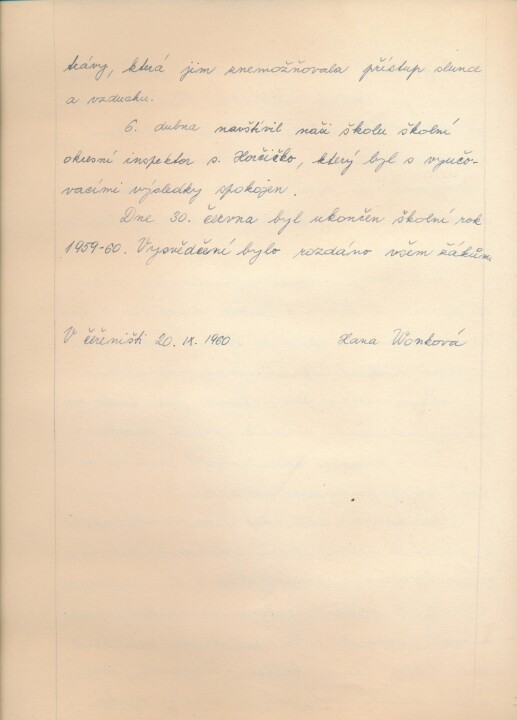 trávy, která jim znemožňovala přístup slunce
a vzduchu.
6. dubna navštívil naši školu školní
okresní inspektor s. Horčičko, který byl s vyučo-
vacími výsledky spokojen.
Dne 30. června byl ukončen školní rok
1959-60. Vysvědčení bylo rozdáno všem žákům
V Čeřeništi 20. IX. 1960 Hana Wonková